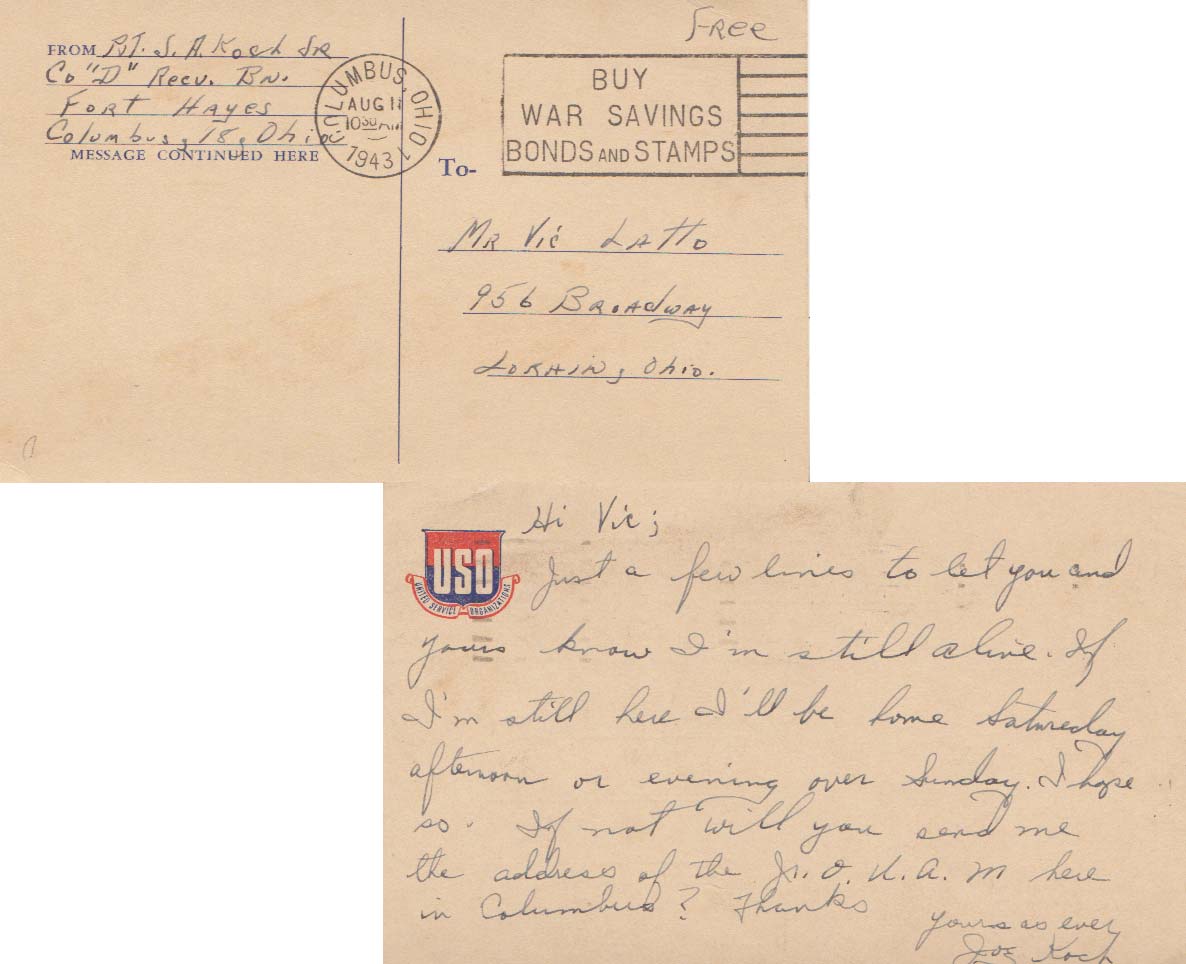 Free
FROM Pvt. J. A. Koch Jr
Co "D" Recv. Bn.
Fort Hayes
Columbus, 18, Ohio
MESSAGE CONTINUED HERE
COLUMBUS, OHIO 1
AUG 11
10 30 AM
1943
BUY
WAR SAVINGS
BONDS AND STAMPS
To-
Mr Vic Latto
956 Broadway
Lorain, Ohio.
USO
UNITED SERVICE ORGANIZATIONS
Hi Vic;
Just a few lines to let you and
yours know I'm still alive. If
I'm still here I'll be home Satureday
afternoon or evening over Sunday. I hope
so. If not will you send me
the address of the Jr. O. U. A. M here
in Columbus? Thanks
yours as ever
Joe Koch